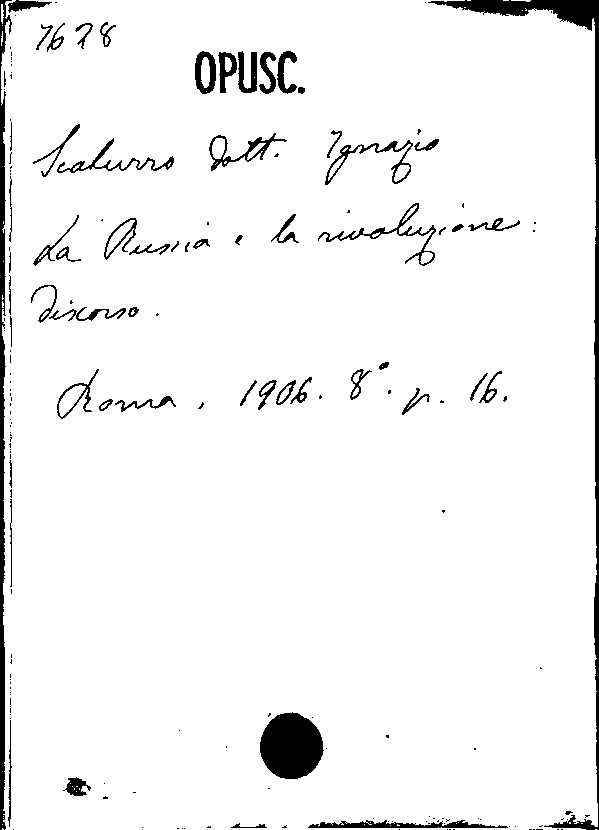 7628
OPUSC.
Scaturro Dott. Ignazio
La Russia e la rivoluzione:
Discorso.
Roma, 1906. 8°. p. 16.